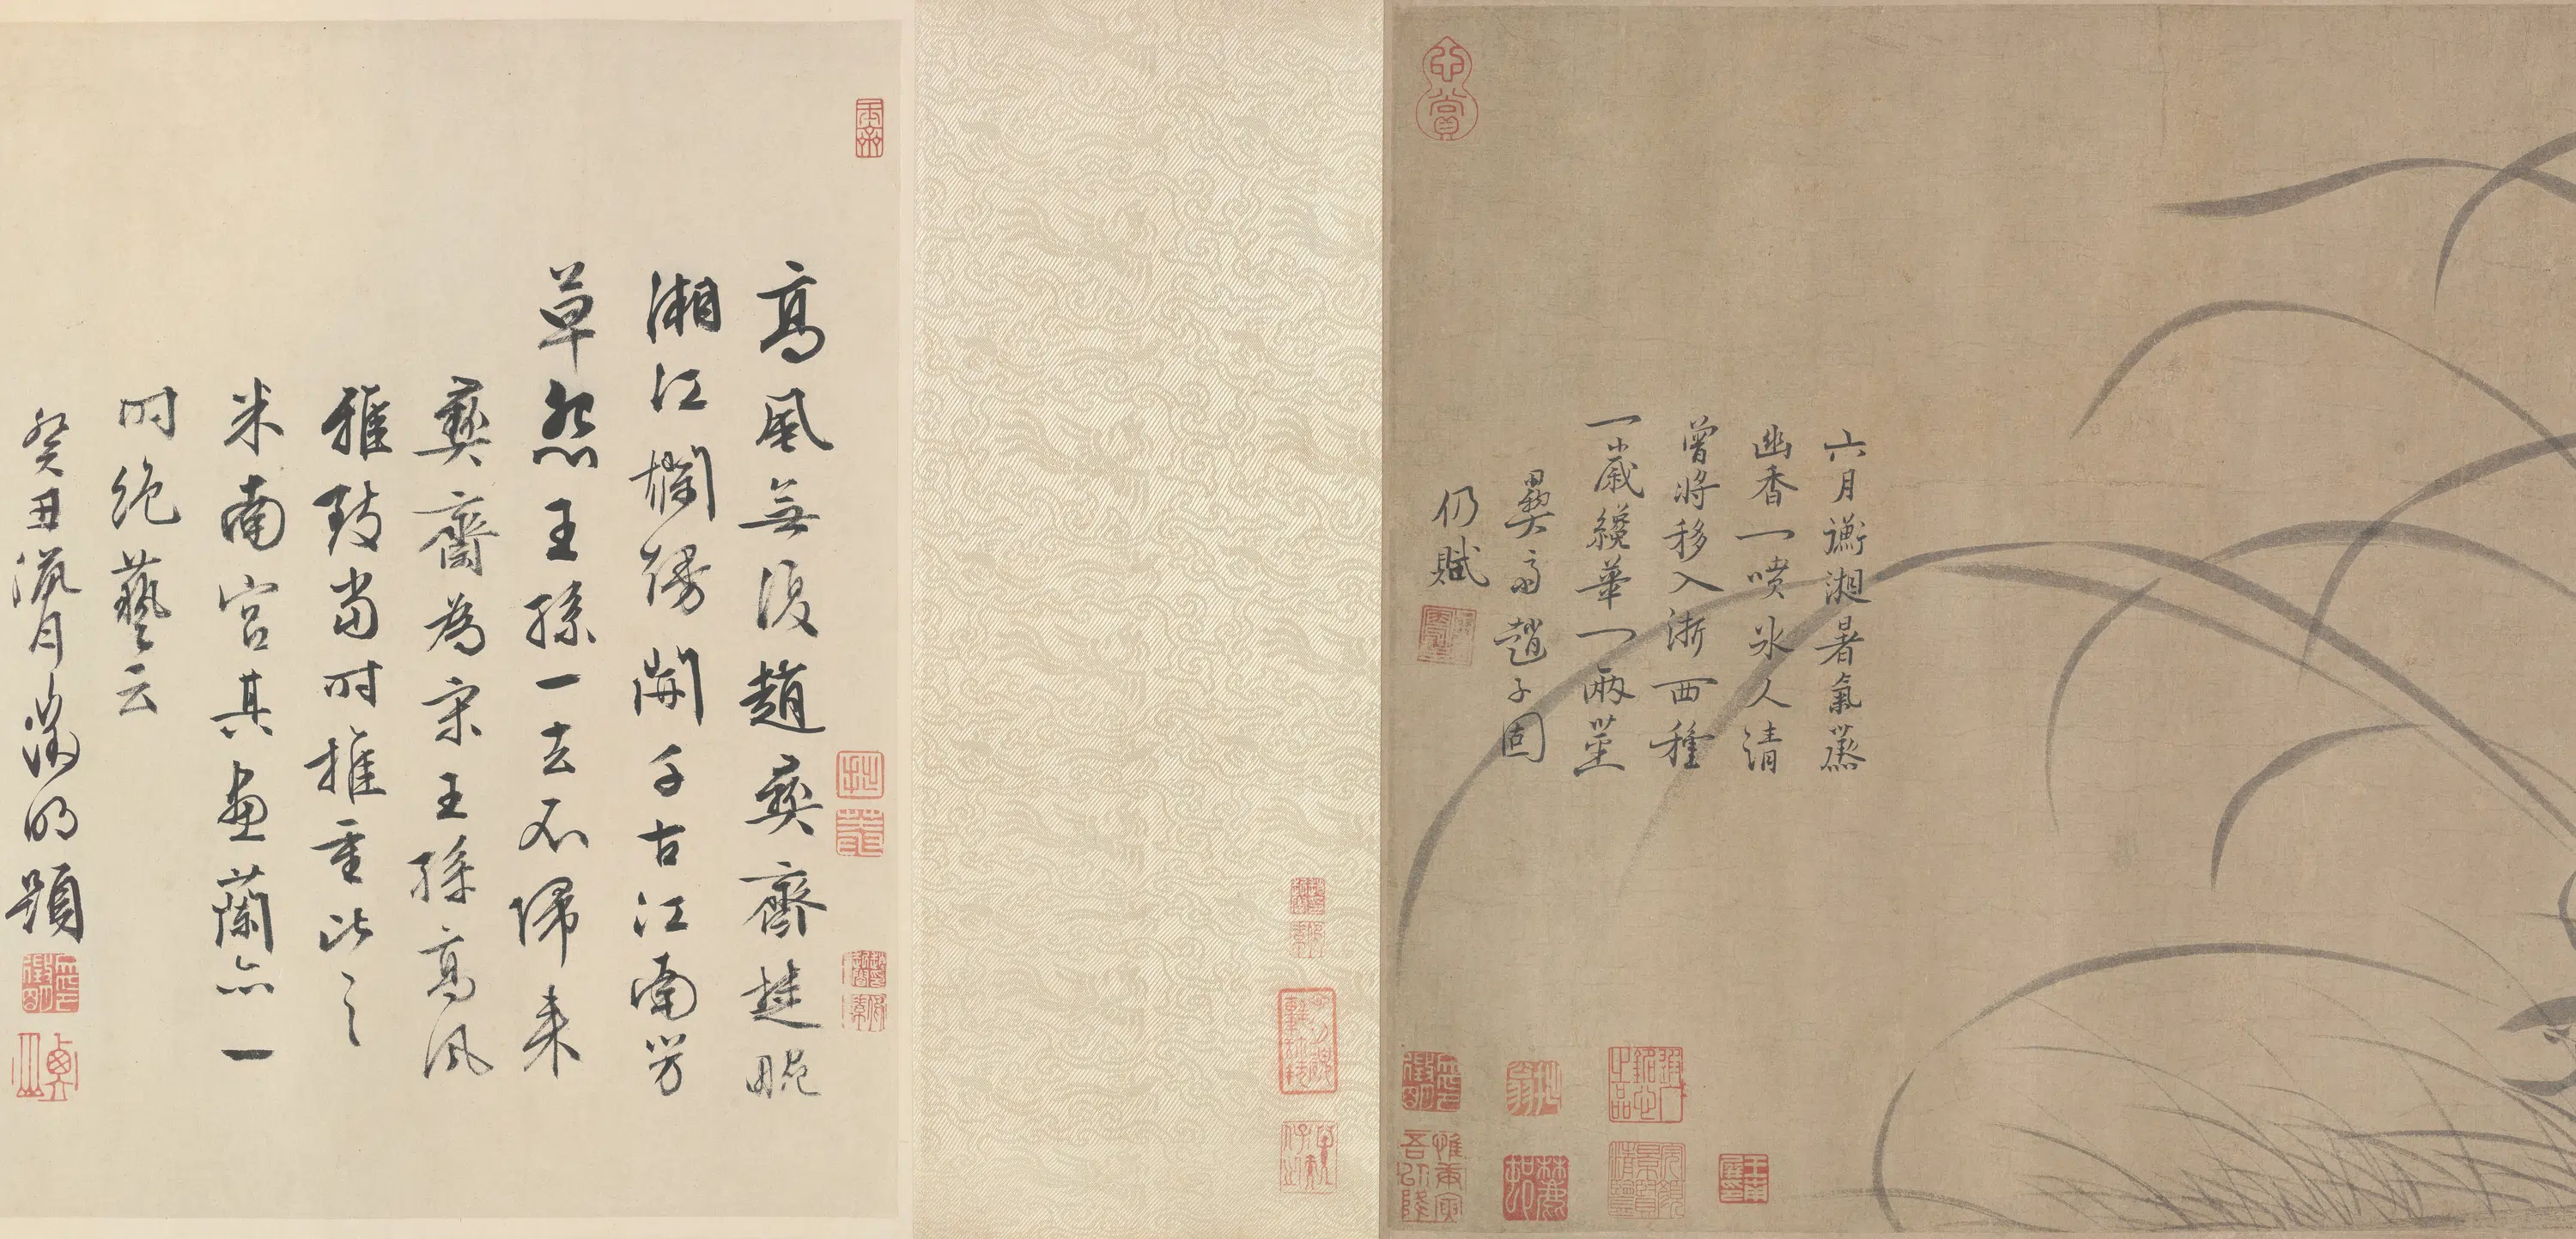 心賞
六月衡湘暑氣蒸
幽香一噴冰人清
曾將移入浙西種
一歲纔華一兩莖
彝斋趙子固
仍賦
高風無復趙彝齋楚畹
湘江爛熳開千古江南芳
草怨王孫一去不歸來
彝齋為宋王孫高風
雅致當时推重比之
米南宮其畫蘭亦一
时絕藝云
癸丑臘月徵明題